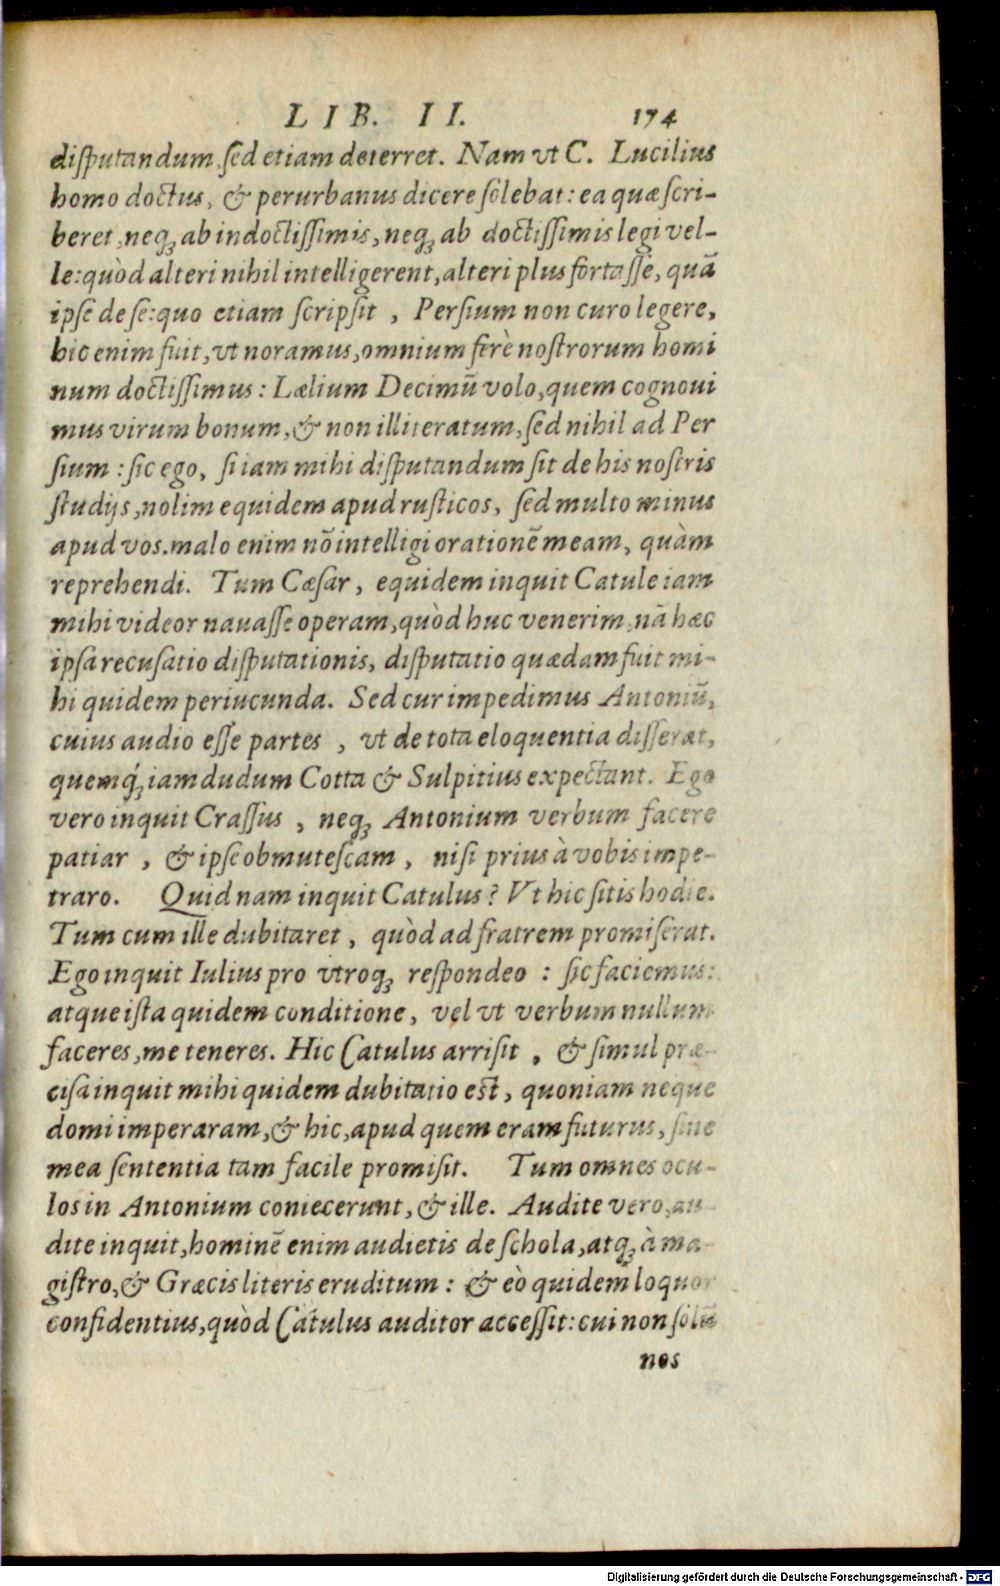 LIB. II. 174
disputandum, sed etiam deterret. Nam vt C. Lucilius
homo doctus, & perurbanus dicere solebat: ea quæ scri-
beret, neq; ab indoctissimis, neq; ab doctissimis legi vel-
le: quòd alteri nihil intelligerent, alteri plus fortasse, quã
ipse de se: quo etiam scripsit, Persium non curo legere,
hic enim fuit, vt noramus, omnium ferè nostrorum homi
num doctissimus: Lælium Decimũ volo, quem cognoui
mus virum bonum, & non illiteratum, sed nihil ad Per
sium: sic ego, si iam mihi disputandum sit de his nostris
studijs, nolim equidem apud rusticos, sed multo minus
apud vos. malo enim nõ intelligi orationẽ meam, quàm
reprehendi. Tum Cæsar, equidem inquit Catule iam
mihi videor nauasse operam, quòd huc venerim, nã hæc
ipsa recusatio disputationis, disputatio quædam fuit mi-
hi quidem periucunda. Sed cur impedimus Antoniũ,
cuius audio esse partes, vt de tota eloquentia disserat,
quemq́; iamdudum Cotta & Sulpitius expectant. Ego
vero inquit Crassus, neq; Antonium verbum facere
patiar, & ipse obmutescam, nisi prius à vobis impe-
traro. Quid nam inquit Catulus? Vt hic sitis hodie.
Tum cum ille dubitaret, quòd ad fratrem promiserat.
Ego inquit Iulius pro vtroq; respondeo: sic faciemus:
atque ista quidem conditione, vel vt verbum nullum
faceres, me teneres. Hic Catulus arrisit, & simul præ-
cisa inquit mihi quidem dubitatio est, quoniam neque
domi imperaram, & hic, apud quem eram futurus, sine
mea sententia tam facile promisit. Tum omnes ocu-
los in Antonium coniecerunt, & ille. Audite vero, au-
dite inquit, hominẽ enim audietis de schola, atq; à ma-
gistro, & Græcis literis eruditum: & eò quidem loquor
confidentius, quòd Catulus auditor accessit: cui non solũ
nos
Digitalisierung gefördert durch die Deutsche Forschungsgemeinschaft - DFG